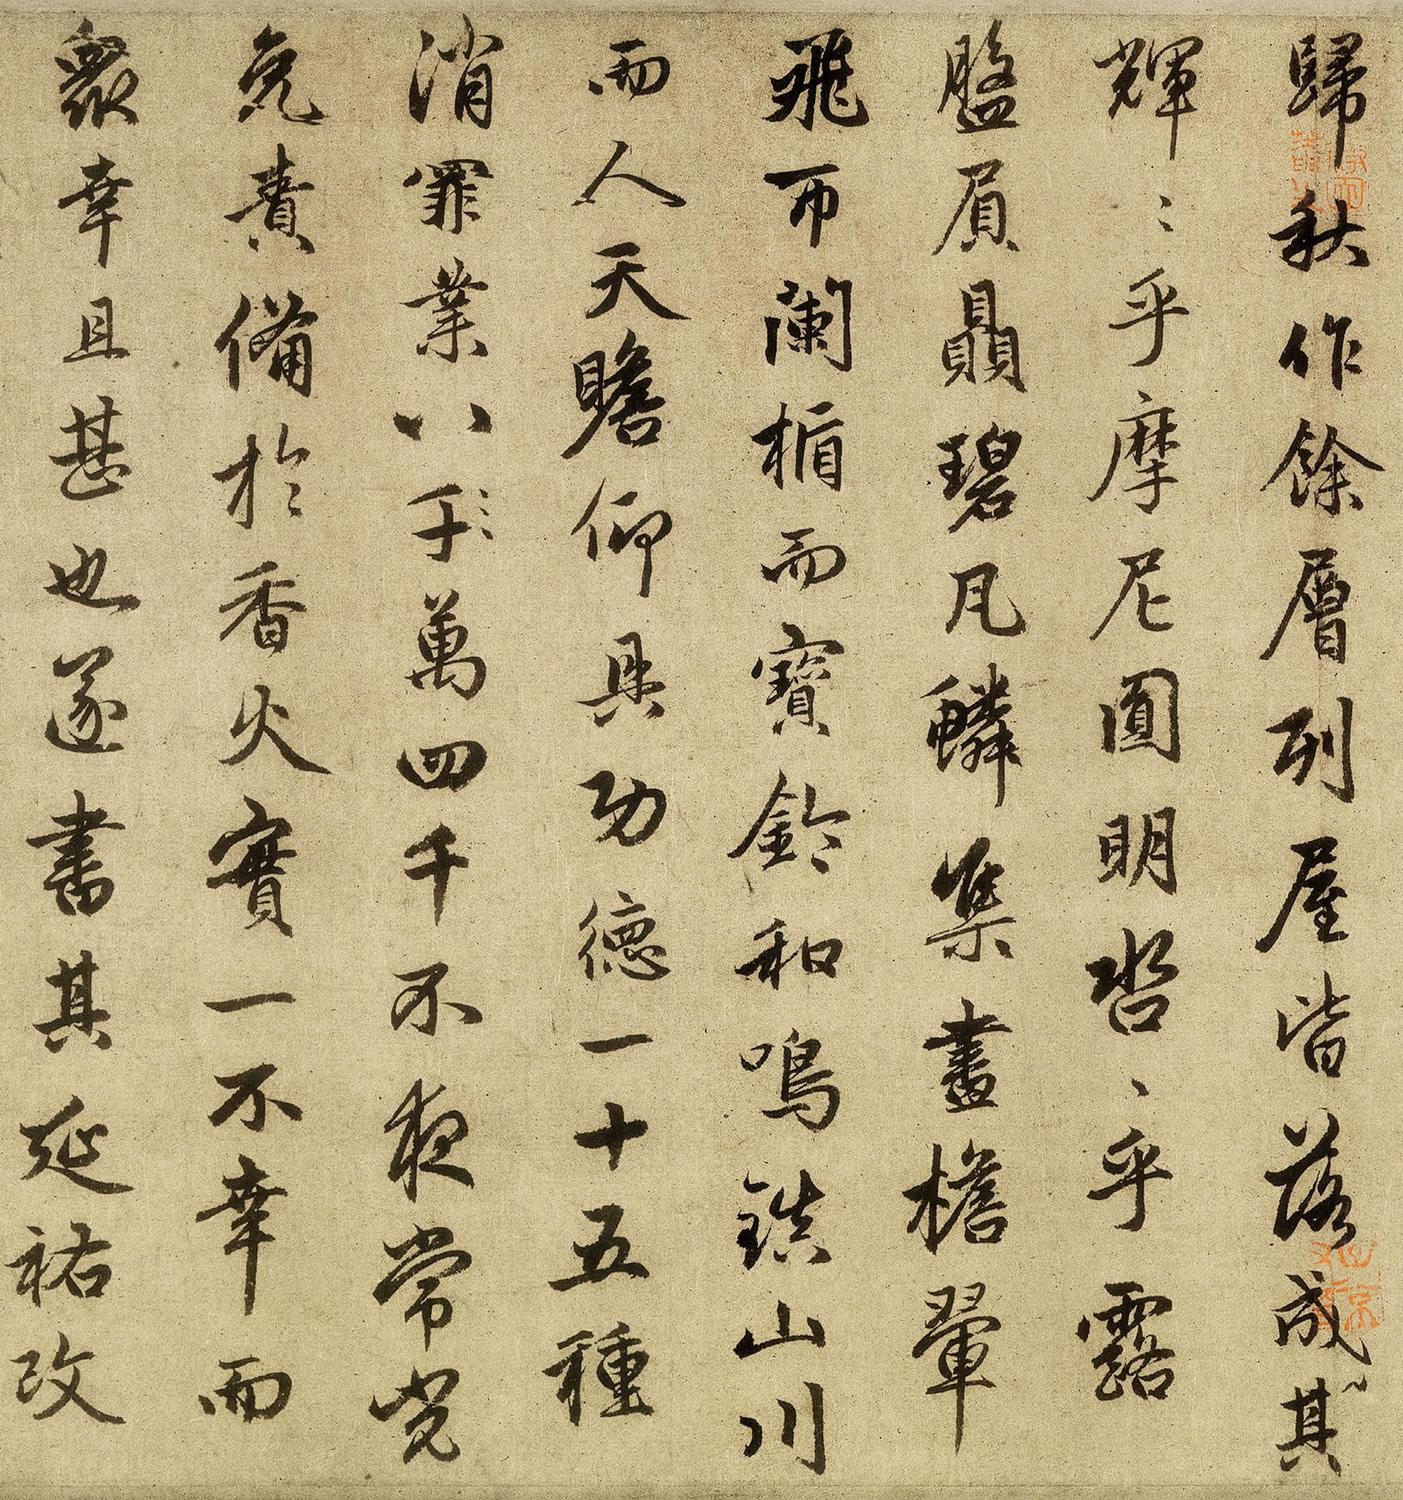 歸秋作餘層列屋皆落成其
輝〻乎摩尼圓明沓〻乎露
盤屓贔碧瓦鱗集畫檐翬
飛帀闌楯而寶鈴和鳴鎮山川
而人天瞻仰具功德一十五種
消罪業八于萬四千不夜常光
免責備於香火實一不幸而
衆幸且甚也遂書其延祐改